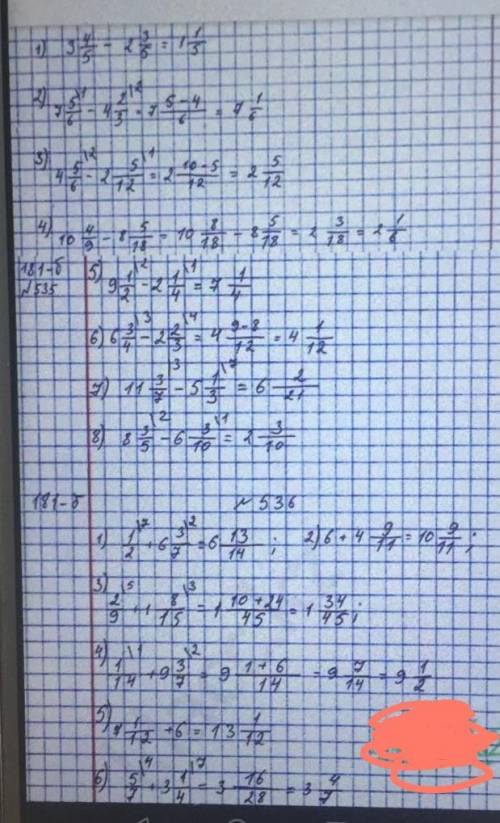 1) 3 4/5 - 2 3/5 = 1 1/5
2) 7 5/6 \1 - 4 2/3 \2 = 7 5-4/6 = 7 1/6
3) 4 5/6 \2 - 2 5/12 \1 = 2 10-5/12 = 2 5/12
4) 10 4/9 - 8 5/18 = 10 8/18 - 8 5/18 = 2 3/18 = 2 1/6
181-б 5) 9 1/2 \2 - 2 1/4 \1 = 7 1/4
№535
6) 6 3/4 \3 - 2 2/3 \4 = 4 9-8/12 = 4 1/12
7) 11 3/7 \3 - 5 1/3 \7 = 6 2/21
8) 8 3/5 \2 - 6 3/10 \1 = 2 3/10
181-б №536
1) 1/2 \7 + 6 3/7 \2 = 6 13/14 ; 2) 6 + 4 9/11 = 10 9/11 ;
3) 2/9 \5 + 1 8/15 \3 = 1 10+24/45 = 1 34/45 ;
4) 1/14 \1 + 9 3/7 \2 = 9 1+6/14 = 9 7/14 = 9 1/2
5) 7 1/12 + 6 = 13 1/12
6) 5/7 \4 + 3 1/4 \7 = 3 16/28 = 3 4/7